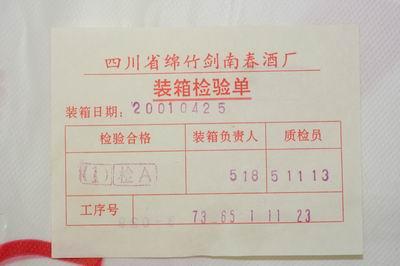 四川省绵竹剑南春酒厂
装箱检验单
装箱日期: 20010425
检验合格 装箱负责人 质检员
(1) 检A 518 51113
工序号 73 65 1 11 23